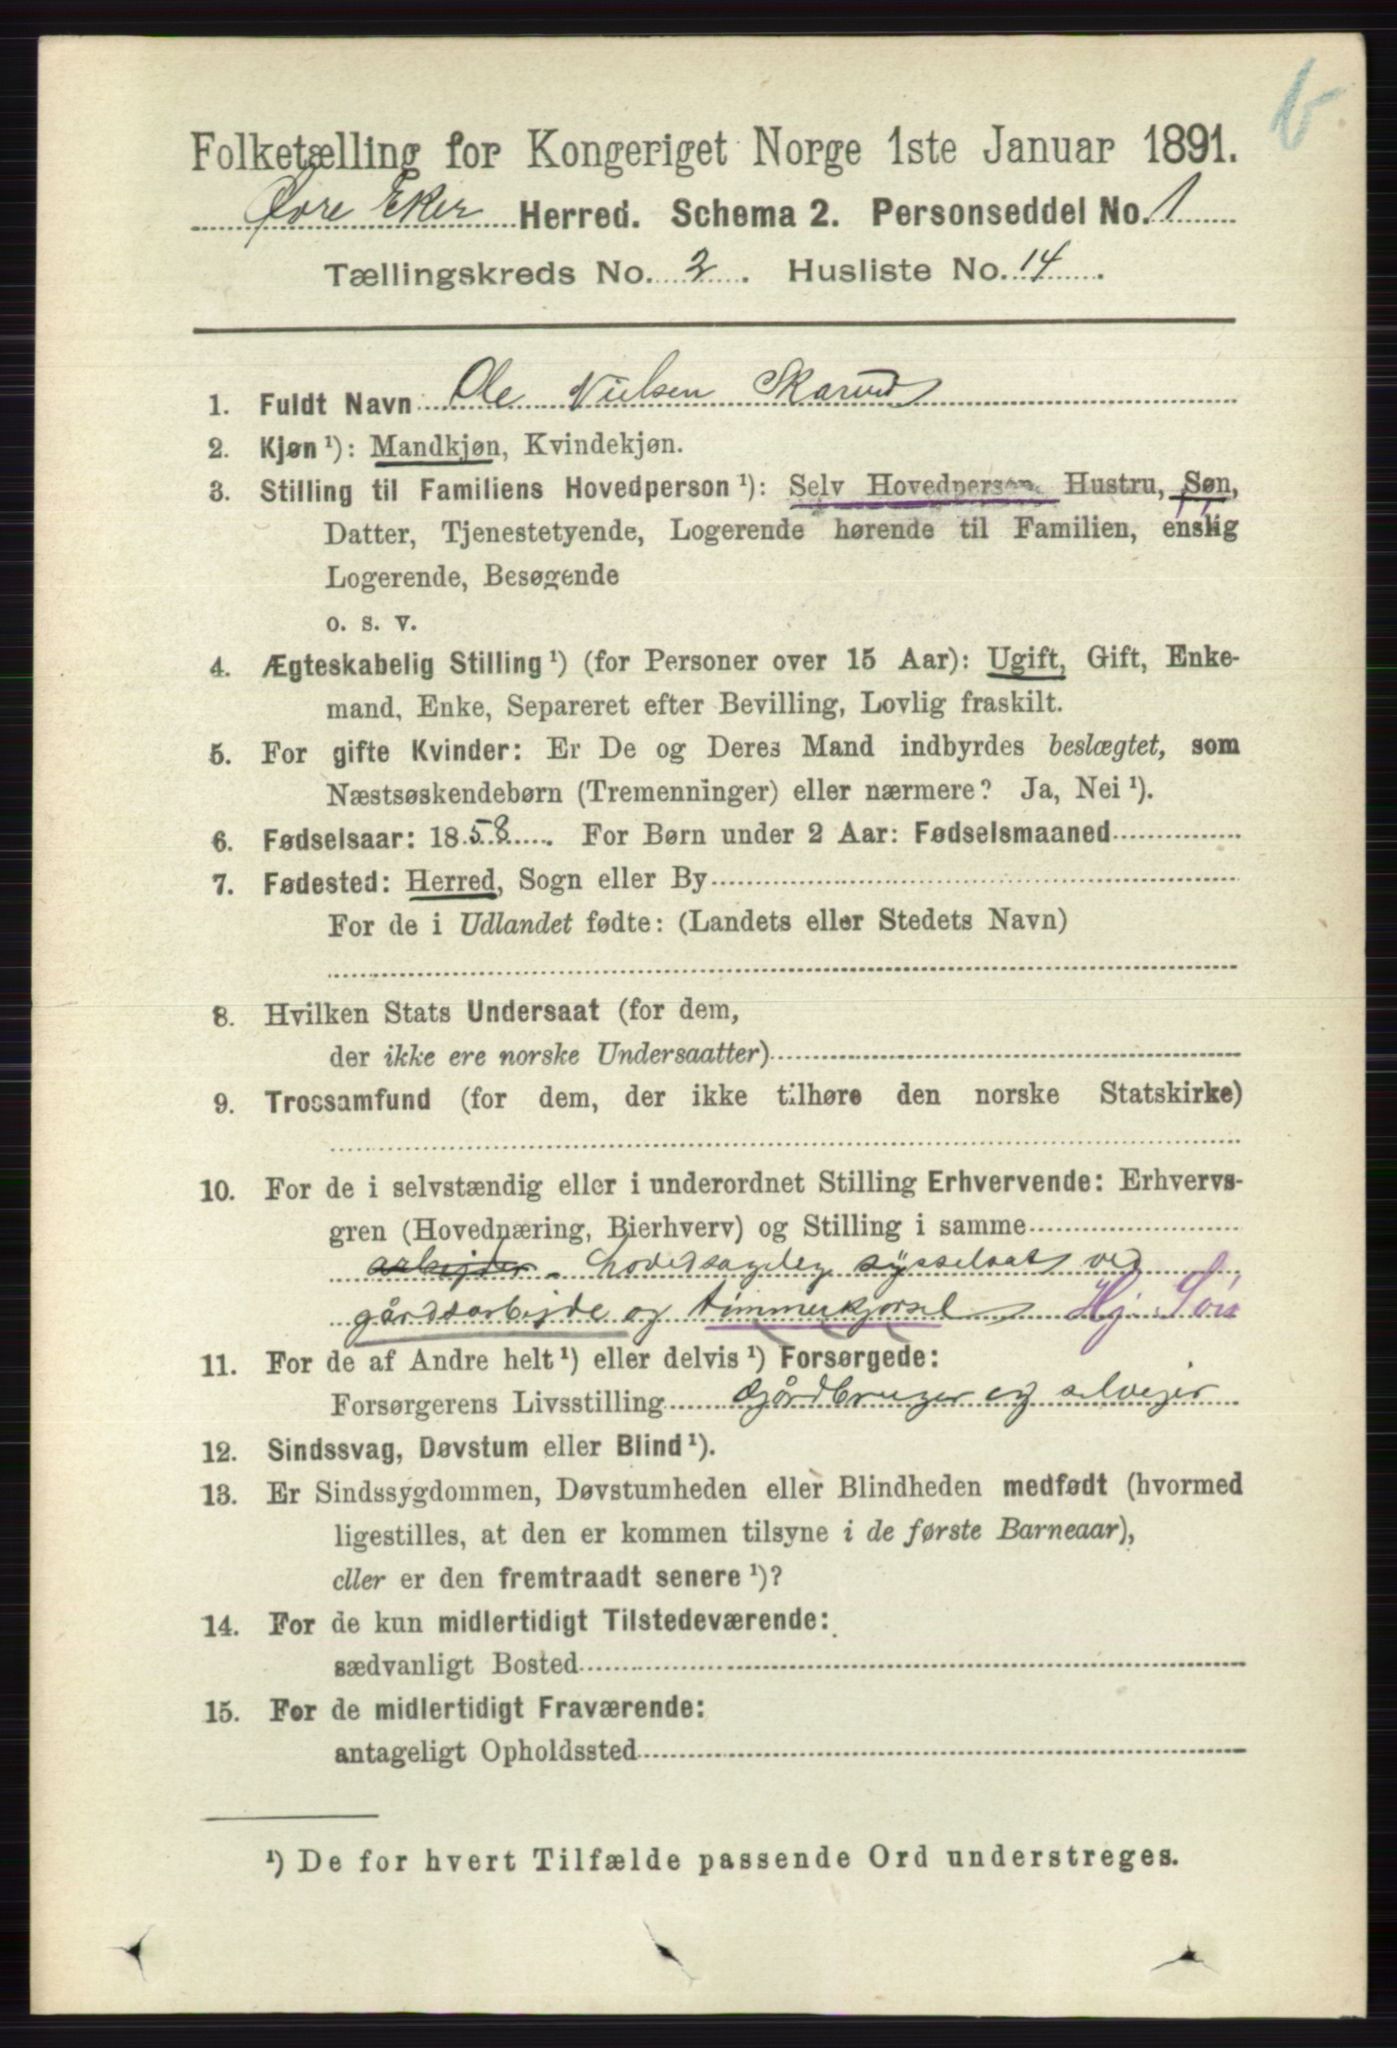 Folketælling for Kongeriget Norge 1ste Januar 1891.
Øvre Eker Herred. Schema 2. Personseddel No. 1
Tællingskreds No. 2. Husliste No. 14.
1. Fuldt Navn Ole Nielsen Skarud
2. Kjøn ¹): Mandkjøn, Kvindekjøn.
3. Stilling til Familiens Hovedperson ¹): Selv Hovedperson, Hustru, Søn,
Datter, Tjenestetyende, Logerende hørende til Familien, enslig
Logerende, Besøgende
o. s. v.
4. Ægteskabelig Stilling ¹) (for Personer over 15 Aar): Ugift, Gift, Enke-
mand, Enke, Separeret efter Bevilling, Lovlig fraskilt.
5. For gifte Kvinder: Er De og Deres Mand indbyrdes beslægtet, som
Næstsøskendebørn (Tremenninger) eller nærmere? Ja, Nei ¹).
6. Fødselsaar: 1858. For Børn under 2 Aar: Fødselsmaaned
7. Fødested: Herred, Sogn eller By
For de i Udlandet fødte: (Landets eller Stedets Navn)
8. Hvilken Stats Undersaat (for dem,
der ikke ere norske Undersaatter)
9. Trossamfund (for dem, der ikke tilhøre den norske Statskirke)
10. For de i selvstændig eller i underordnet Stilling Erhvervende: Erhvervs-
gren (Hovednæring, Bierhverv) og Stilling i samme
arbejder - hovedsagelig sysselsat ved
gårdsarbejde og tømmerkjørsel Hj. Søn
11. For de af Andre helt ¹) eller delvis ¹) Forsørgede:
Forsørgerens Livsstilling Gårdbruger og selvejer
12. Sindssvag, Døvstum eller Blind ¹).
13. Er Sindssygdommen, Døvstumheden eller Blindheden medfødt (hvormed
ligestilles, at den er kommen tilsyne i de første Barneaar),
eller er den fremtraadt senere ¹)?
14. For de kun midlertidigt Tilstedeværende:
sædvanligt Bosted
15. For de midlertidigt Fraværende:
antageligt Opholdssted
¹) De for hvert Tilfælde passende Ord understreges.